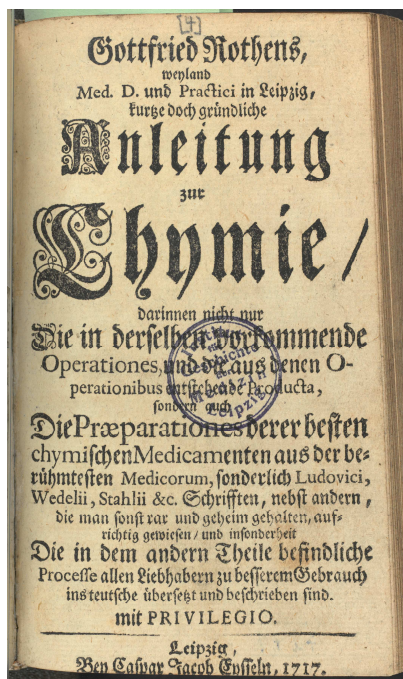 [4]
Gottfried Rothens,
weyland
Med. D. und Practici in Leipzig,
kurtze doch gründliche
Anleitung
zur
Chymie /
darinnen nicht nur
Die in derselben vorkommende
Operationes, und die aus denen O-
perationibus entstehende Producta,
sondern auch
Die Præparationes derer besten
chymischen Medicamenten aus der be-
rühmtesten Medicorum, sonderlich Ludovici,
Wedelii, Stahlii &c. Schrifften, nebst andern,
die man sonst rar und geheim gehalten, auf-
richtig gewiesen / und insonderheit
Die in dem andern Theile befindliche
Processe allen Liebhabern zu besserem Gebrauch
ins teutsche übersetzt und beschrieben sind.
mit PRIVILEGIO.
Leipzig,
Bey Caspar Jacob Eysseln, 1717.
Geschichte
der
Medizin
Leipzig